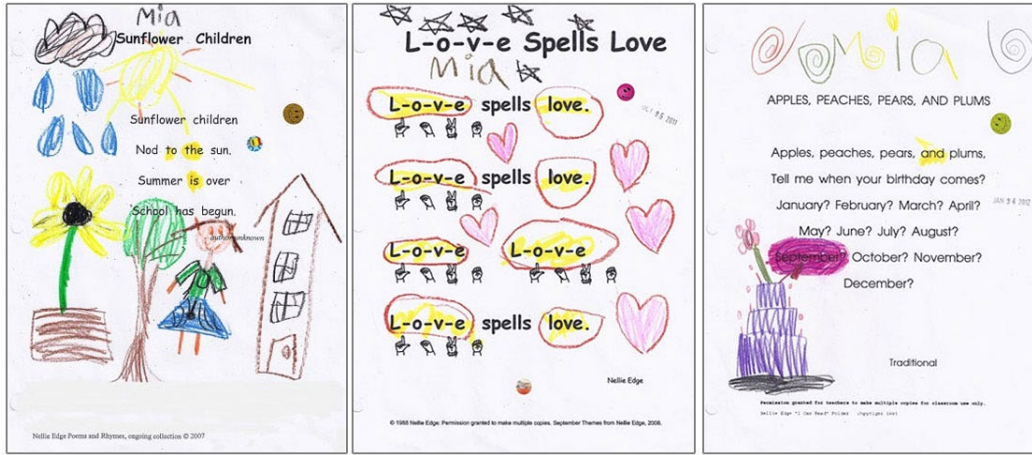 Mia
Sunflower Children
Sunflower children
Nod to the sun.
Summer is over
School has begun.
author unknown
Nellie Edge Poems and Rhymes, ongoing collection © 2007
L-o-v-e Spells Love
Mia
L-o-v-e spells love.
L-o-v-e spells love.
L-o-v-e L-o-v-e
L-o-v-e spells love.
Nellie Edge
© 1988 Nellie Edge: Permission granted to make multiple copies. September Themes from Nellie Edge, 2008.
Mia
APPLES, PEACHES, PEARS, AND PLUMS
Apples, peaches, pears, and plums,
Tell me when your birthday comes?
January? February? March? April?
JAN 26 2012
May? June? July? August?
September? October? November?
December?
Traditional
Permission granted for teachers to make multiple copies for classroom use only.
Nellie Edge "I Can Read" Folder Copyright